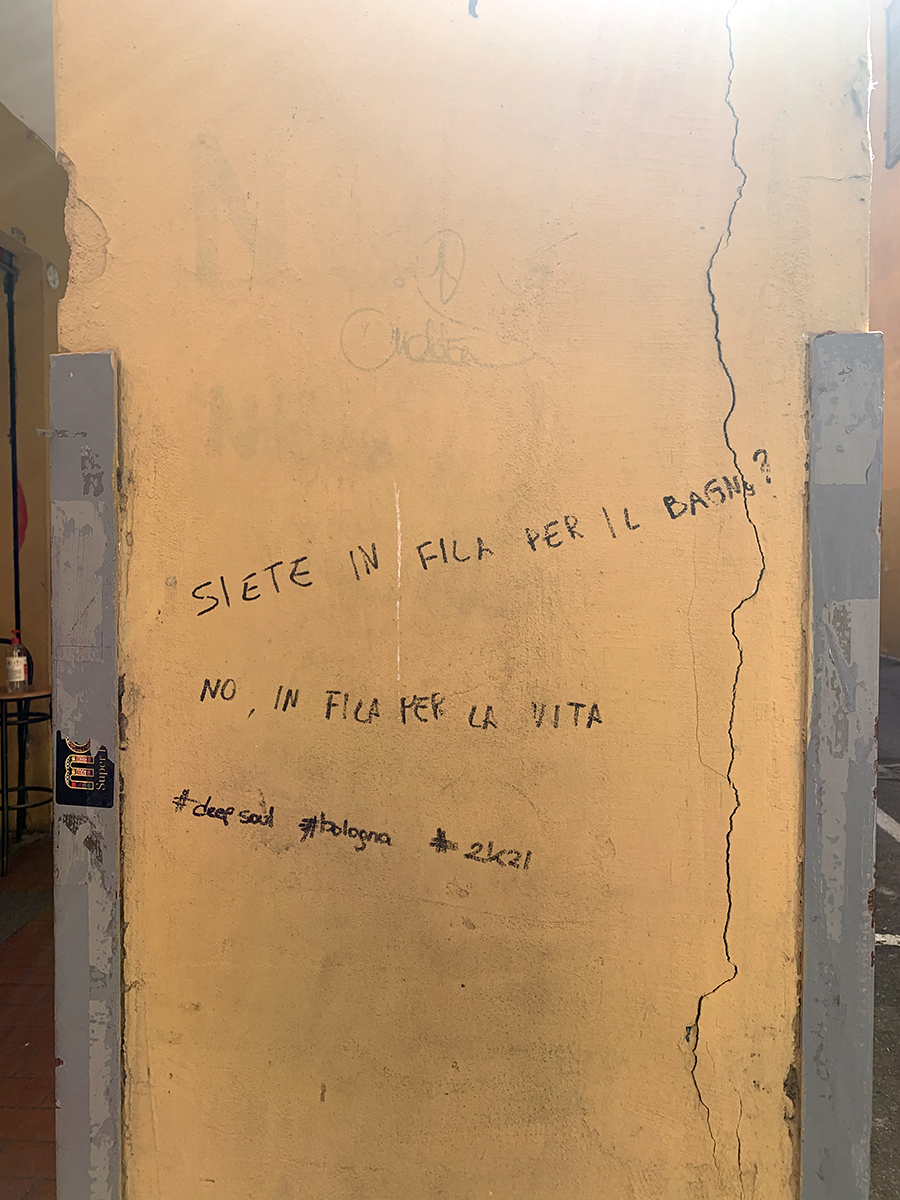 SIETE IN FILA PER IL BAGNO?
NO, IN FILA PER LA VITA
#deep soul #bologna # 2k21